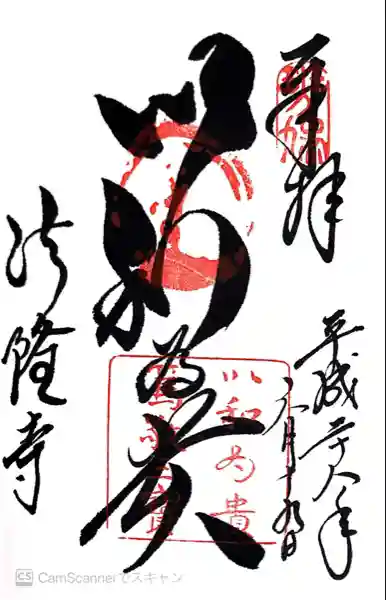 奉拝
平成二十八年
六月十九日
以和為貴
以和為貴
法隆寺
CS CamScannerでスキャン